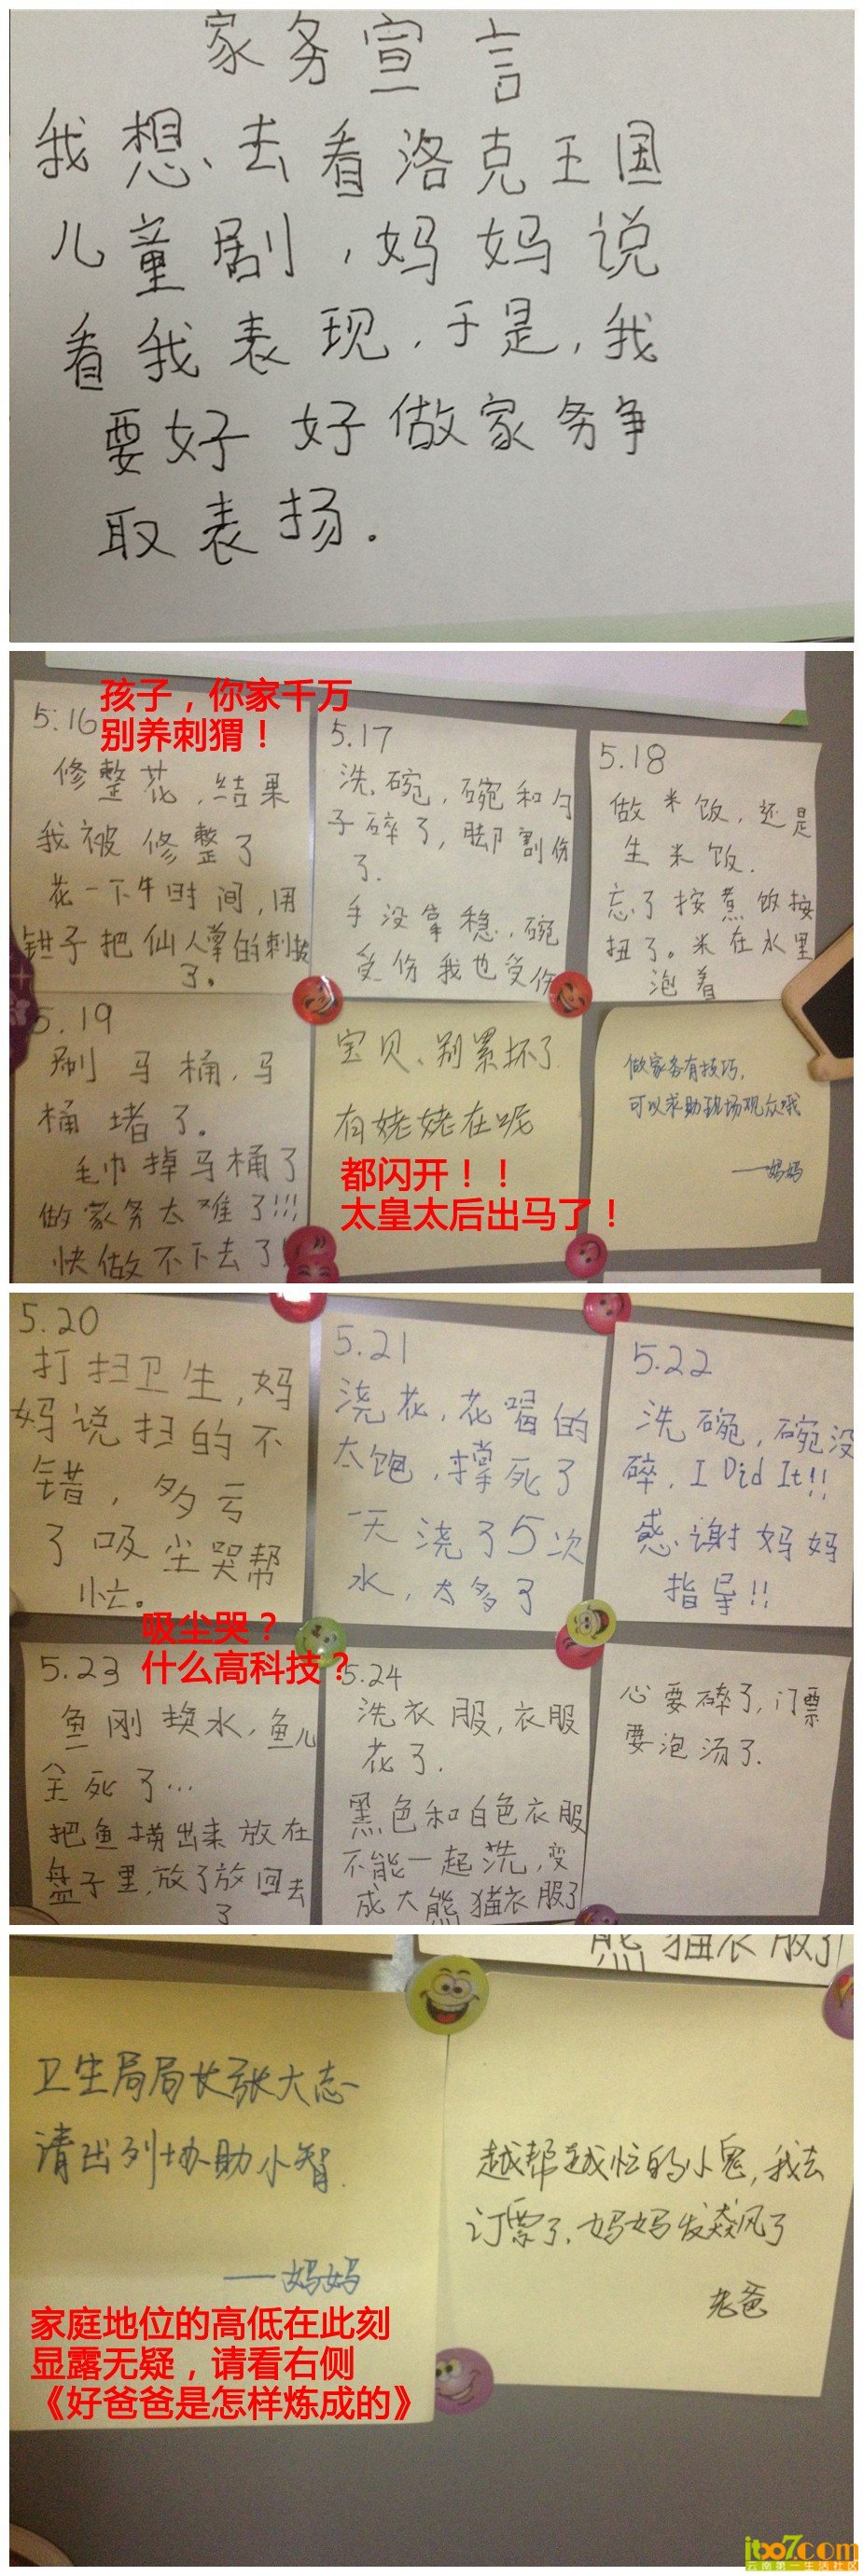 家务宣言
我想去看洛克王国
儿童剧，妈妈说
看我表现，于是，我
要好好做家务争
取表扬.
孩子，你家千万
别养刺猬！
5.16
修整花，结果
我被修整了
花一下午时间，用
钳子把仙人掌的刺拔
了。
5.17
洗碗，碗和勺
子碎了，脚割伤
了.
手没拿稳，碗
受伤我也受伤
5.18
做米饭，还是
生米饭.
忘了按煮饭按
扭了。米在水里
泡着
5.19
刷马桶，马
桶堵了。
毛巾掉马桶了
做家务太难了!!!
快做不下去了!
宝贝、别累坏了
有姥姥在呢
都闪开！！
太皇太后出马了！
做家务有技巧，
可以求助现场观众哦
——妈妈
5.20
打扫卫生，妈
妈说扫的不
错，多亏
了吸尘哭帮
忙。
吸尘哭？
什么高科技？
5.21
浇花，花喝的
太饱，撑死了
一天浇了5次
水，太多了
5.22
洗碗，碗没
碎，I Did It!!
感谢妈妈
指导!!
5.23
鱼刚换水，鱼儿
全死了…
把鱼捞出来放在
盘子里，放了放回去
了
5.24
洗衣服，衣服
花了.
黑色和白色衣服
不能一起洗，变
成大熊猫衣服了
心要碎了，门票
要泡汤了.
熊猫衣服了
卫生局局长张大志
请出列协助小智.
——妈妈
家庭地位的高低在此刻
显露无疑，请看右侧
《好爸爸是怎样炼成的》
越帮越忙的小鬼，我去
订票了，妈妈发飙风了
老爸
itxo7.com
云南第一生活社区